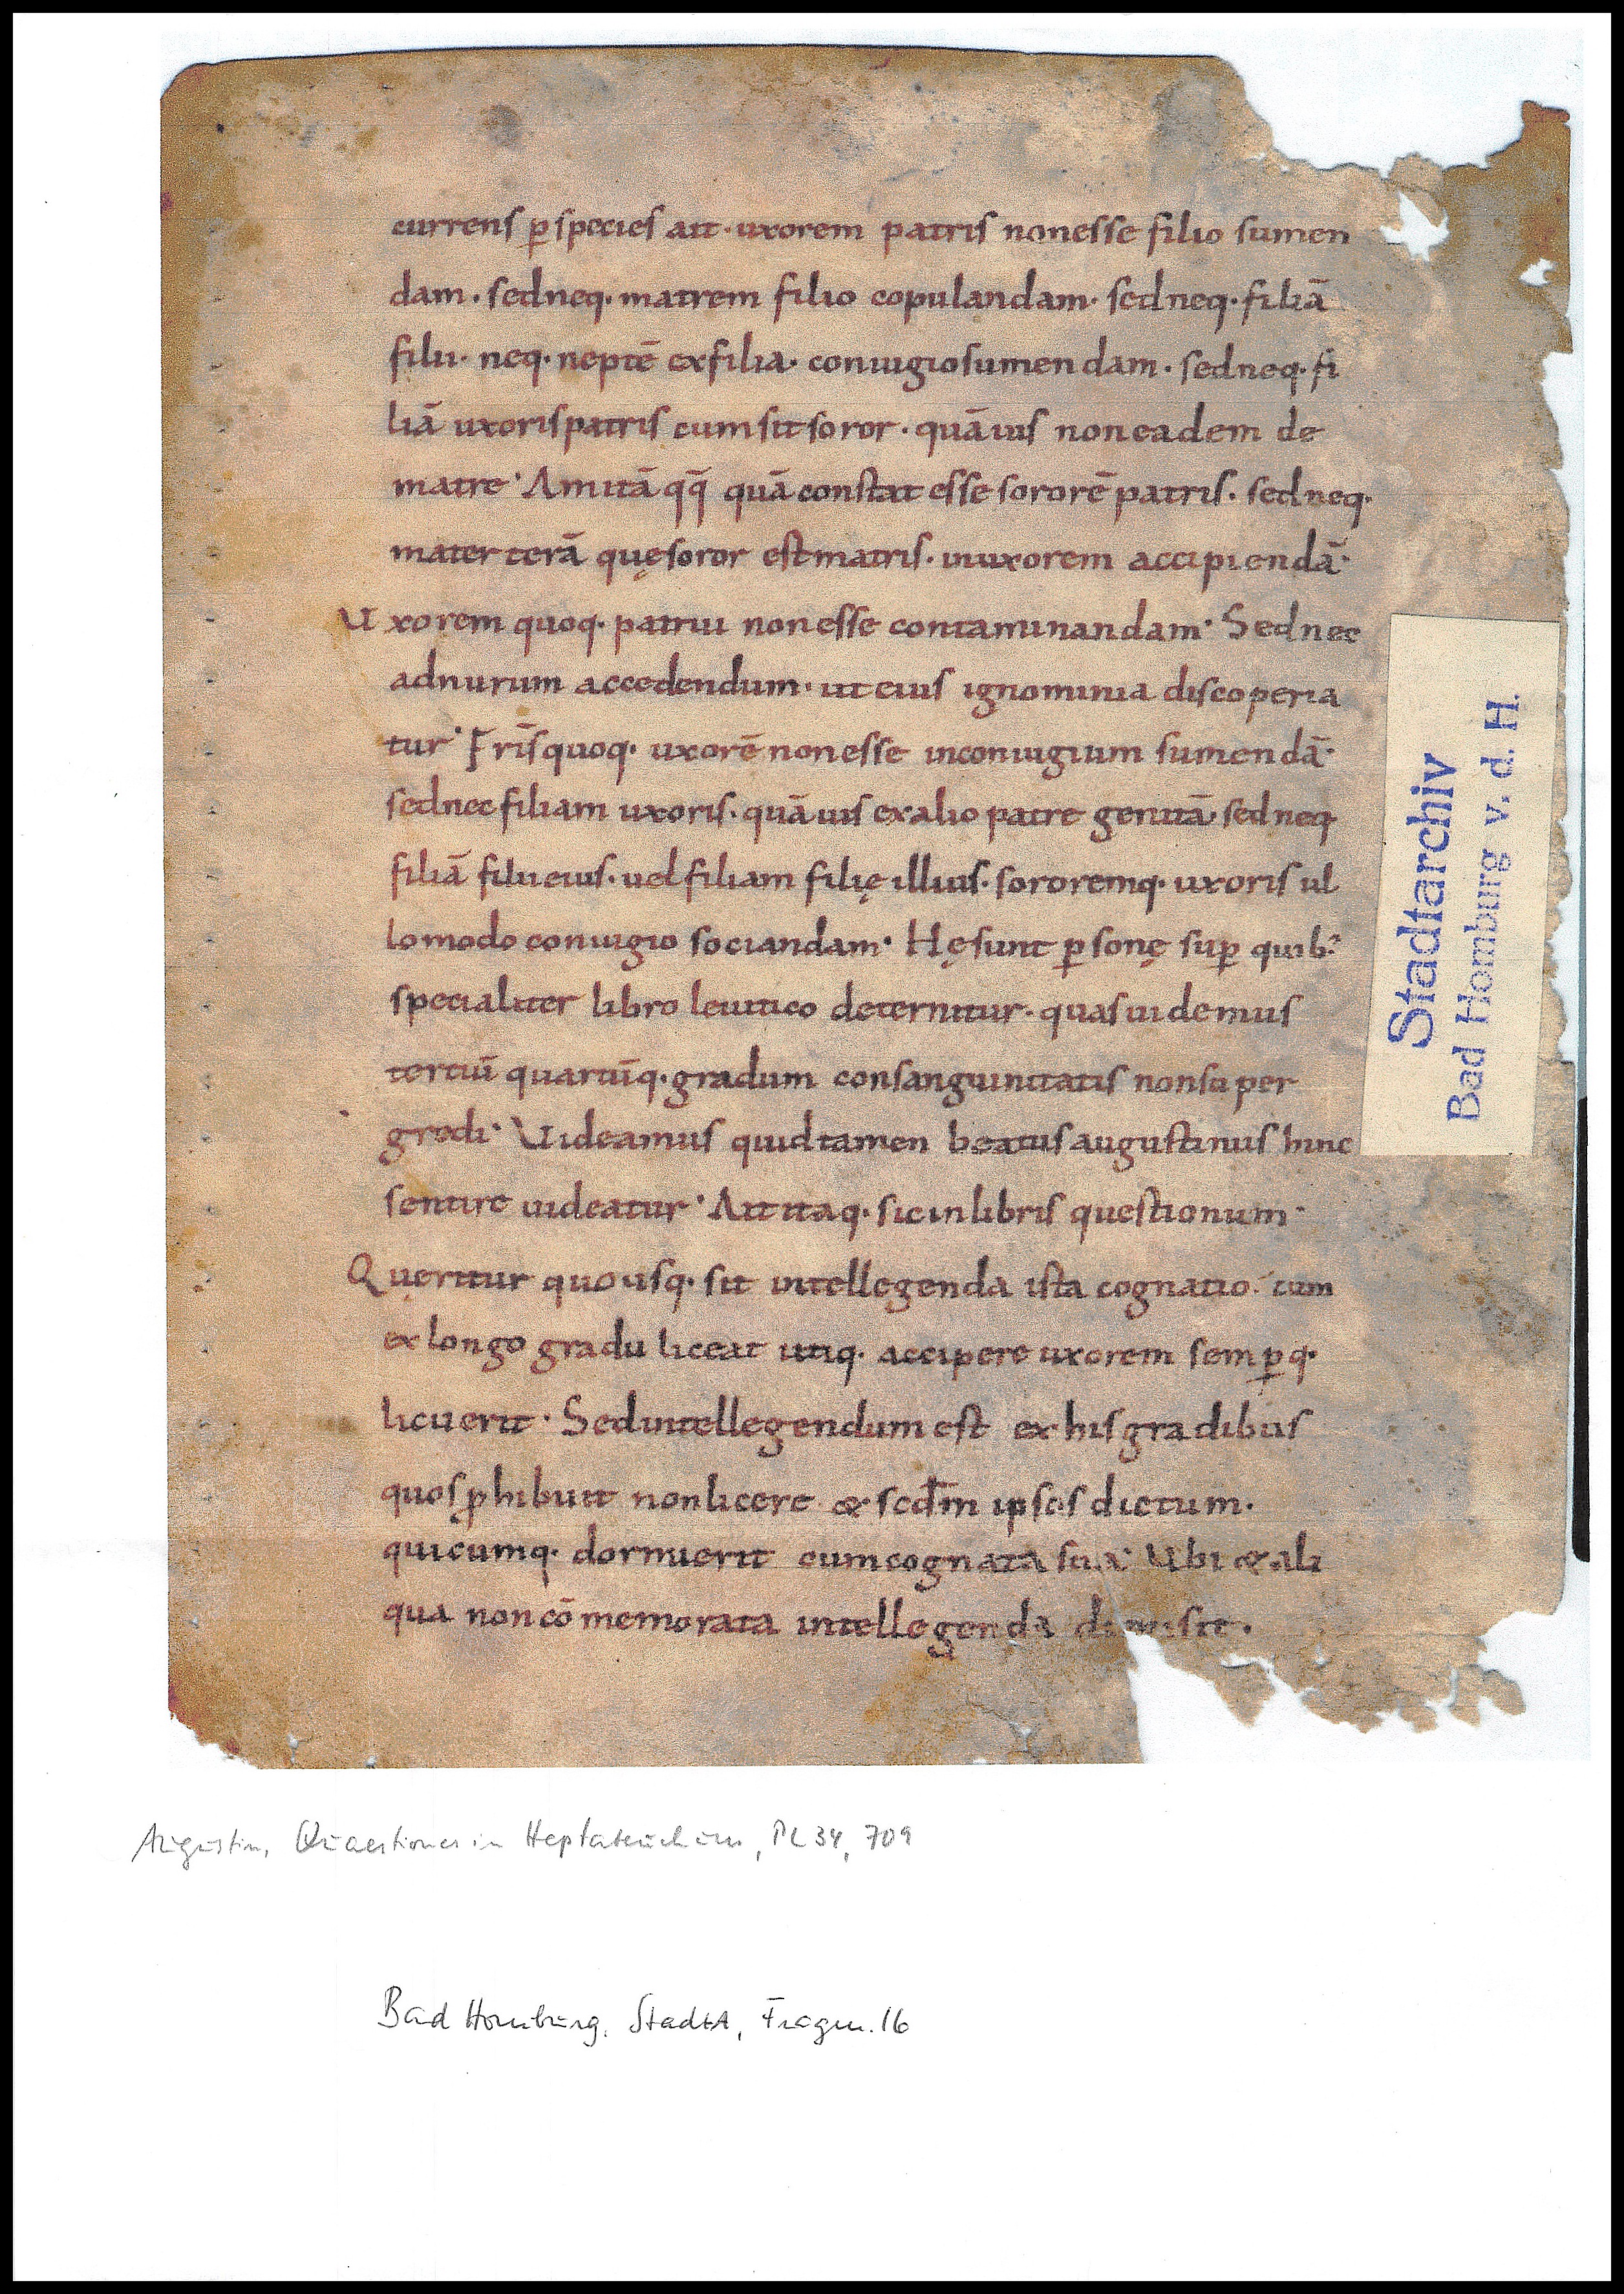 currens p̱ species ait · uxorem patris non esse filio sumen
dam · sed neq· matrem filio copulandam · sed neq· filiā
filii · neq· neptē ex filia · coniugio sumendam · sed neq· fi
liā uxoris patris cum sit soror · quāuis non eadem de
matre · Amitā qq̄ quā constat esse sororē patris · sed neq·
materterā quę soror est matris · in uxorem accipiendā·
Uxorem quoq· patrui non esse contaminandam · Sed nec
ad nurum accedendum · ut eius ignominia discoperia
tur · Fr̄is quoq· uxorē non esse in coniugium sumendā·
sed nec filiam uxoris · quāuis ex alio patre genitā · sed neq
filiā filii eius · uel filiam filię illius · sororemq· uxoris ul
lo modo coniugio sociandam · Hę sunt p̱sonę sup̱ quib:
specialiter libro leuitico deternitur · quas uidemus
tertiū quartūq· gradum consanguinitatis non super
gredi · Uideamus quid tamen beatus augustinus hinc
sentire uideatur · Ait itaq· sic in libris questionum ·
Quęritur quo usq· sit intellegenda ista cognatio · cum
ex longo gradu liceat utiq· accipere uxorem semp̱q·
licuerit · Sed intellegendum est ex his gradibus
quos ꝓhibuit non licere & secd̄m ipsos dictum ·
quicumq· dormierit cum cognata sua · Ubi & ali
qua non cōmemorata intellegenda sit ·
Stadtarchiv
Bad Homburg v. d. H.
Augustin, Quaestiones in Heptateuchum, PL 34, 709
Bad Homburg, StadtA, Fragm. 16